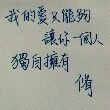 我的愛又能夠
讓你一個人
獨自擁有